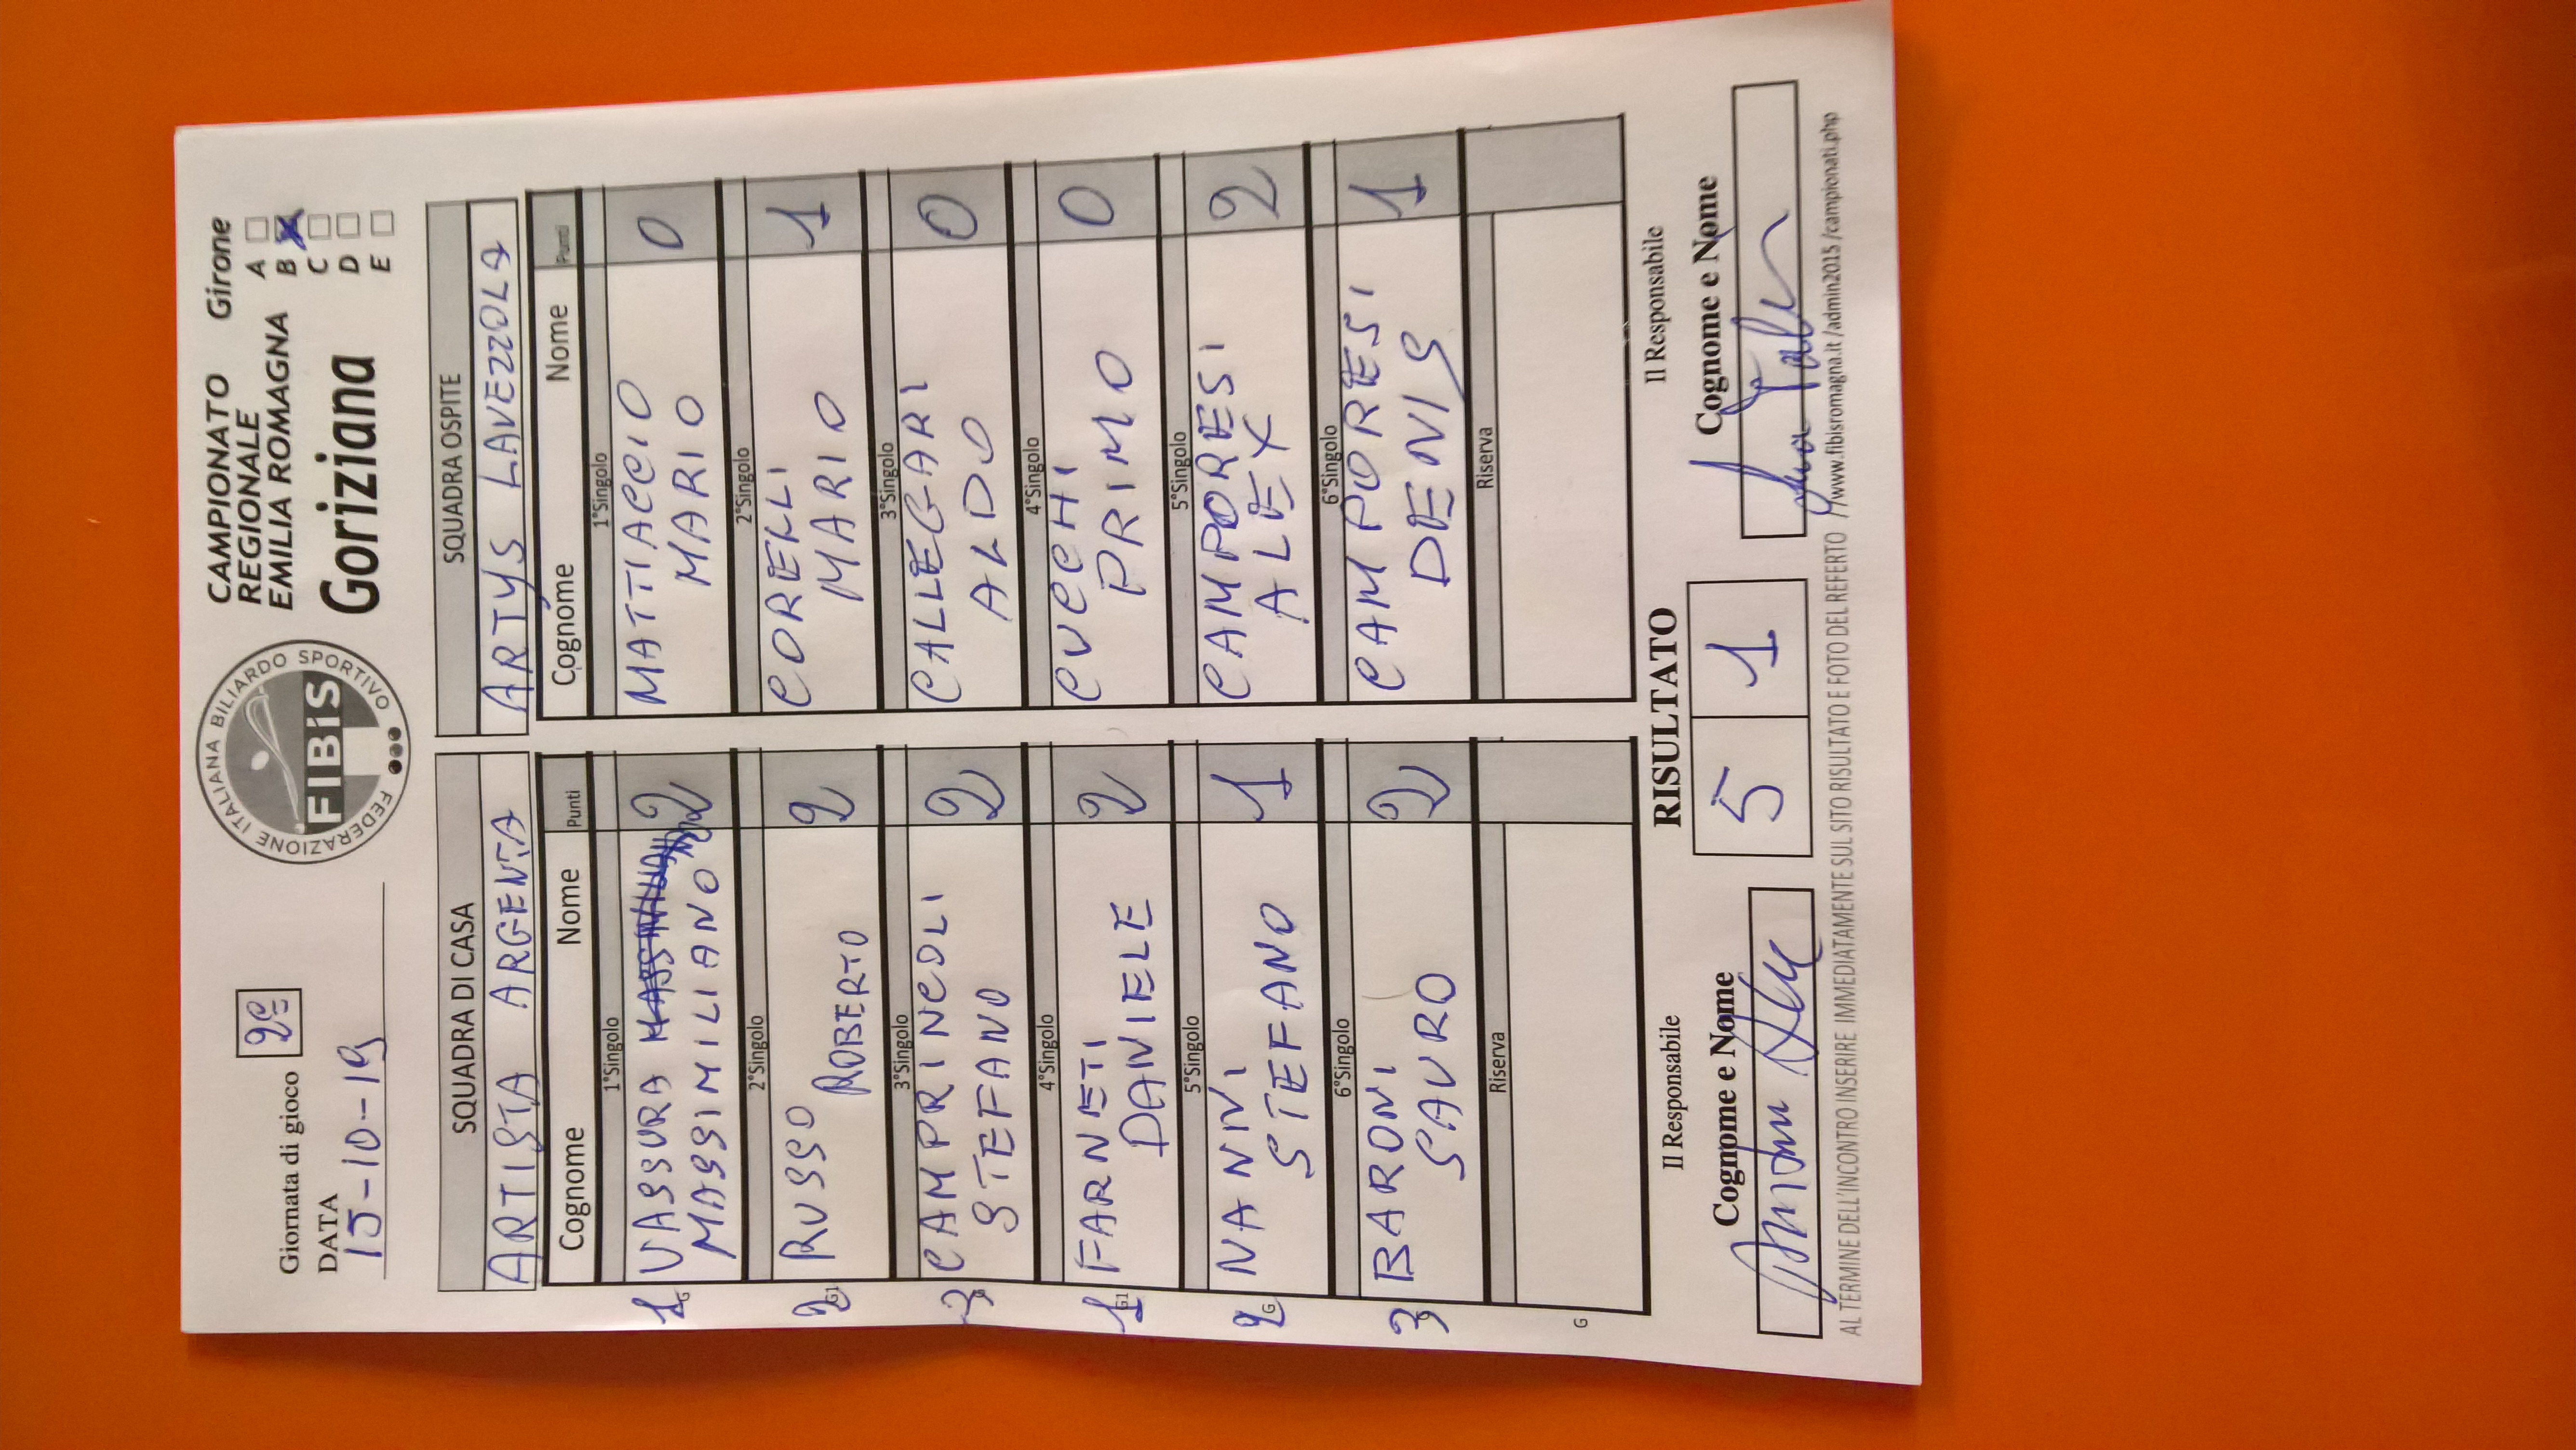 Giornata di gioco 2e
DATA
15-10-19
FEDERAZIONE ITALIANA BILIARDO SPORTIVO
FIBiS
CAMPIONATO
REGIONALE
EMILIA ROMAGNA
Goriziana
Girone
A
B X
C
D
E
SQUADRA DI CASA
ARTISTA ARGENTA
Cognome Nome Punti
1°Singolo
1 G VASSURA 2
MASSIMILIANO 2
2°Singolo
2 G1 RUSSO ROBERTO 2
3°Singolo
3 G CAMPRINCOLI 2
STEFANO
4°Singolo
1 G1 FARNETI 2
DANIELE
5°Singolo
2 G NANNI 1
STEFANO
6°Singolo
3 BARONI 2
SAURO
Riserva
G
SQUADRA OSPITE
ARTYS LAVEZZOLA
Cognome Nome Punti
1°Singolo
MATTIACCIO 0
MARIO
2°Singolo
CORELLI 1
MARIO
3°Singolo
CALLEGARI 0
ALDO
4°Singolo
CUCCHI 0
PRIMO
5°Singolo
CAMPORESI 2
ALEX
6°Singolo
CAMPORESI 1
DENIS
Riserva
Il Responsabile
Cognome e Nome
RISULTATO
5 1
Il Responsabile
Cognome e Nome
AL TERMINE DELL'INCONTRO INSERIRE IMMEDIATAMENTE SUL SITO RISULTATO E FOTO DEL REFERTO //www.fibisromagna.it /admin2015 /campionati.php